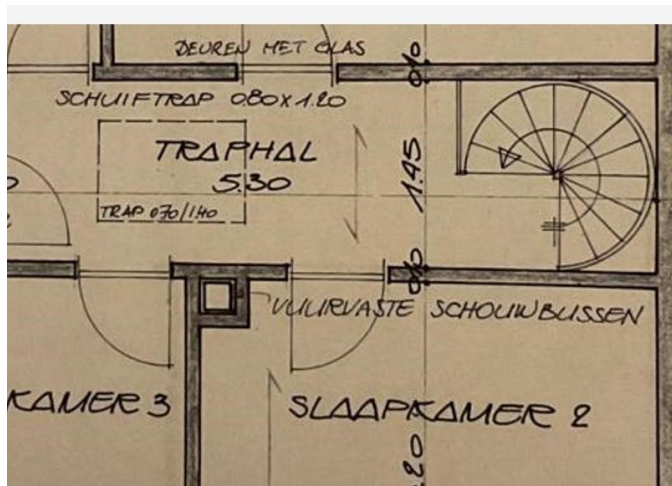 DEUREN MET GLAS
SCHUIFTRAP 0.80 X 1.20
TRAPHAL
5.30
TRAP 070/1.40
0.10
1.45
0.10
VUURVASTE SCHOUWBUSSEN
KAMER 3
SLAAPKAMER 2
.20